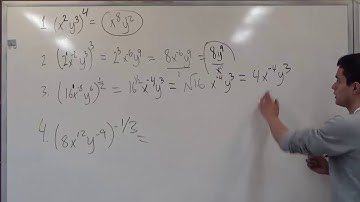 1. (x²y³)⁴ = x⁸y²
2. (2x⁻²y³)³ = 2³x⁻⁶y⁹ = 8x⁻⁶y⁹/1 = 8y⁹/x⁶
3. (16x⁻⁸y⁶)^(1/2) = 16^(1/2)x⁻⁴y³ = √16 x⁻⁴y³ = 4x⁻⁴y³
4. (8x¹²y⁻⁹)^(-1/3) =